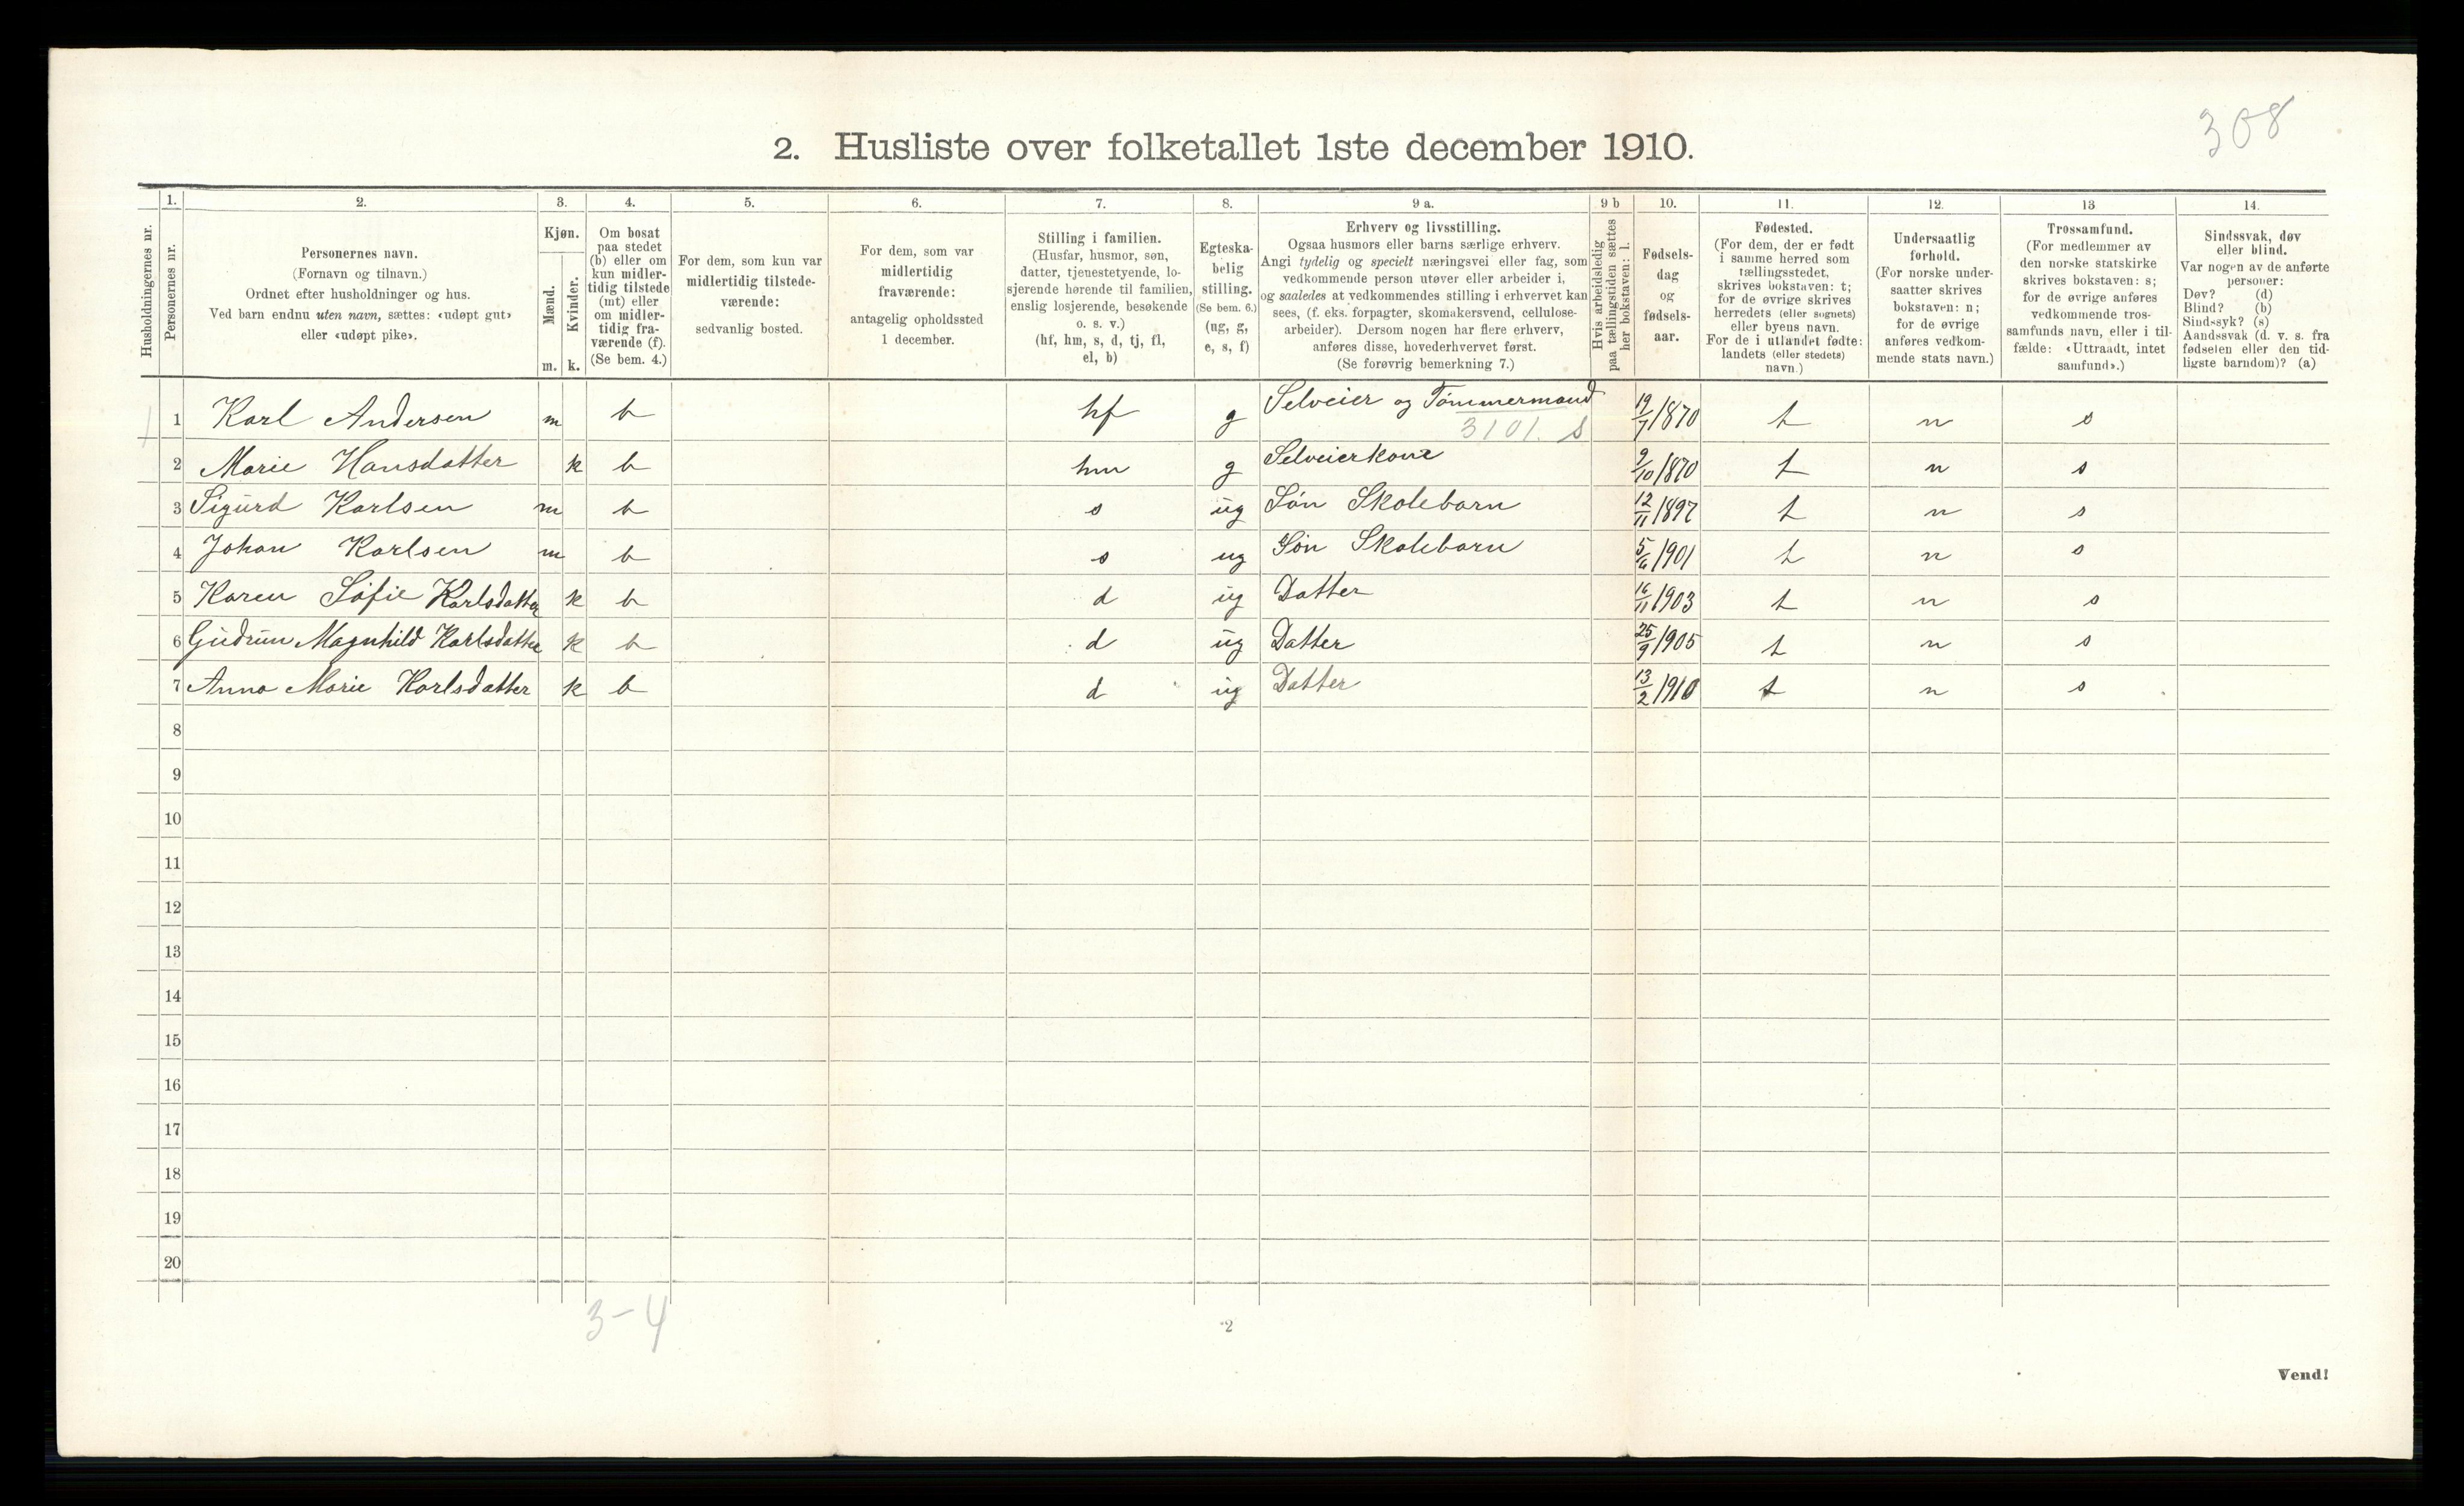 308
2. Husliste over folketallet 1ste december 1910.
1. 2. 3. 4. 5. 6. 7. 8. 9 a. 9 b 10. 11. 12. 13 14.
Husholdningernes nr.
Personernes nr.
Personernes navn.
(Fornavn og tilnavn.)
Ordnet efter husholdninger og hus.
Ved barn endnu uten navn, sættes: «udøpt gut»
eller «udøpt pike».
Kjøn.
Mænd.
Kvinder.
m. k.
Om bosat
paa stedet
(b) eller om
kun midler-
tidig tilstede
(mt) eller
om midler-
tidig fra-
værende (f).
(Se bem. 4.)
For dem, som kun var
midlertidig tilstede-
værende:
sedvanlig bosted.
For dem, som var
midlertidig
fraværende:
antagelig opholdssted
1 december.
Stilling i familien.
(Husfar, husmor, søn,
datter, tjenestetyende, lo-
sjerende hørende til familien,
enslig losjerende, besøkende
o. s. v.)
(hf, hm, s, d, tj, fl,
el, b)
Egteska-
belig
stilling.
(Se bem. 6.)
(ug, g,
e, s, f)
Erhverv og livsstilling.
Ogsaa husmors eller barns særlige erhverv.
Angi tydelig og specielt næringsvei eller fag, som
vedkommende person utøver eller arbeider i,
og saaledes at vedkommendes stilling i erhvervet kan
sees, (f. eks. forpagter, skomakersvend, cellulose-
arbeider). Dersom nogen har flere erhverv,
anføres disse, hovederhvervet først.
(Se forøvrig bemerkning 7.)
Hvis arbeidsledig
paa tællingstiden sættes
her bokstaven: l.
Fødsels-
dag
og
fødsels-
aar.
Fødested.
(For dem, der er født
i samme herred som
tællingsstedet,
skrives bokstaven: t;
for de øvrige skrives
herredets (eller sognets)
eller byens navn.
For de i utlandet fødte:
landets (eller stedets)
navn.)
Undersaatlig
forhold.
(For norske under-
saatter skrives
bokstaven: n;
for de øvrige
anføres vedkom-
mende stats navn.)
Trossamfund.
(For medlemmer av
den norske statskirke
skrives bokstaven: s;
for de øvrige anføres
vedkommende tros-
samfunds navn, eller i til-
fælde: «Uttraadt, intet
samfund».)
Sindssvak, døv
eller blind.
Var nogen av de anførte
personer:
Døv? (d)
Blind? (b)
Sindssyk? (s)
Aandssvak (d. v. s. fra
fødselen eller den tid-
ligste barndom)? (a)
1 1 Karl Andersen m b hf g Selveier og Tømmermand 19/7 1870 t n s
3101. S
2 Marie Hansdatter k b hm g Selveierkone 9/10 1870 t n s
3 Sigurd Karlsen m b s ug Søn Skolebarn 12/11 1897 t n s
4 Johan Karlsen m b s ug Søn Skolebarn 5/6 1901 t n s
5 Karen Sofie Karlsdatter k b d ug Datter 16/11 1903 t n s
6 Gudrun Magnhild Karlsdatter k b d ug Datter 25/9 1905 t n s
7 Anna Marie Karlsdatter k b d ug Datter 13/2 1910 t n s
8
9
10
11
12
13
14
15
16
17
18
19
20
3-4
2
Vend!